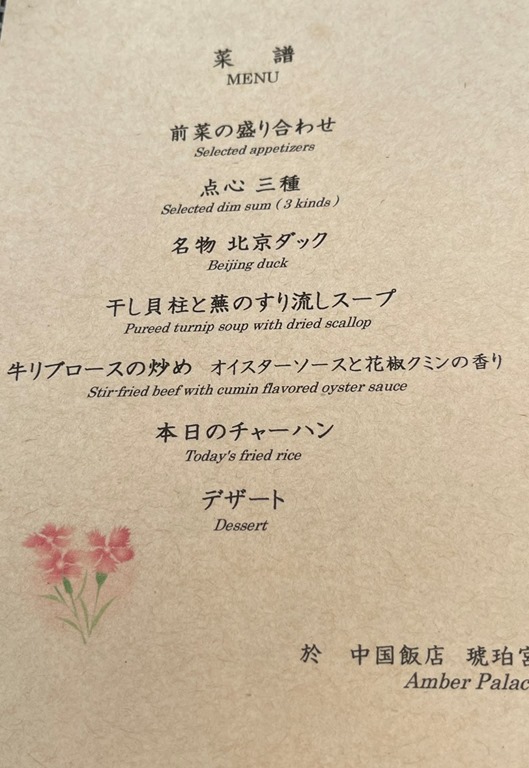 菜 譜
MENU
前菜の盛り合わせ
Selected appetizers
点心 三種
Selected dim sum ( 3 kinds )
名物 北京ダック
Beijing duck
干し貝柱と蕪のすり流しスープ
Pureed turnip soup with dried scallop
牛リブロースの炒め オイスターソースと花椒クミンの香り
Stir-fried beef with cumin flavored oyster sauce
本日のチャーハン
Today's fried rice
デザート
Dessert
於 中国飯店 琥珀宮
Amber Palac